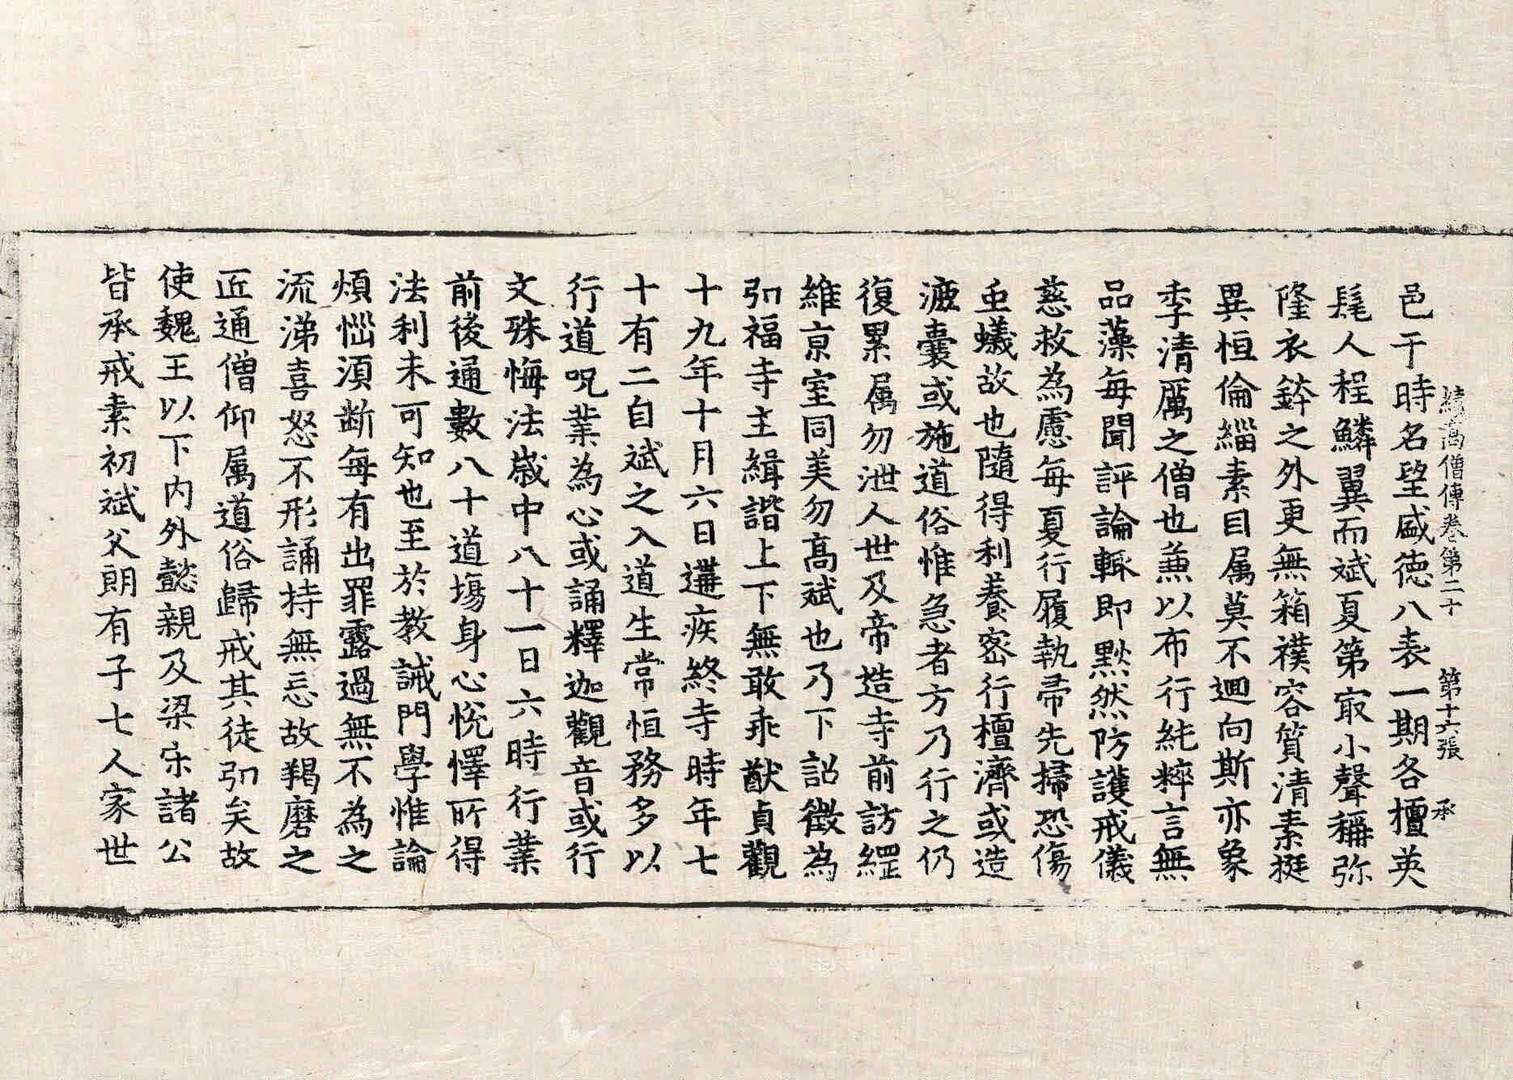 續高僧傳卷第二十　第十六張　承
邑于時名望盛德八表一期各擅英
髦人程鱗翼而斌夏第㝡小聲稱弥
隆衣鉢之外更無箱襆容質清素挺
異恒倫緇素目属莫不迴向斯亦象
季清厲之僧也兼以布行純粹言無
品藻每聞評論輙即黙然防護戒儀
慈救為慮每夏行履執帚先掃恐傷
虫蟻故也隨得利養密行檀濟或造
漉囊或施道俗惟急者方乃行之仍
復累属勿泄人世及帝造寺前訪綱
維京室同美勿高斌也乃下詔徵為
弘福寺主緝諧上下無敢乖猷貞觀
十九年十月六日遘疾終寺時年七
十有二自斌之入道生常恒務多以
行道呪業為心或誦釋迦觀音或行
文殊悔法歲中八十一日六時行業
前後通數八十道場身心悅懌所得
法利未可知也至於教誡門學惟論
煩惱須断每有出罪露過無不為之
流涕喜怒不形誦持無忘故羯磨之
匠通僧仰属道俗歸戒其徒弘矣故
使魏王以下內外懿親及梁宋諸公
皆承戒素初斌父朗有子七人家世